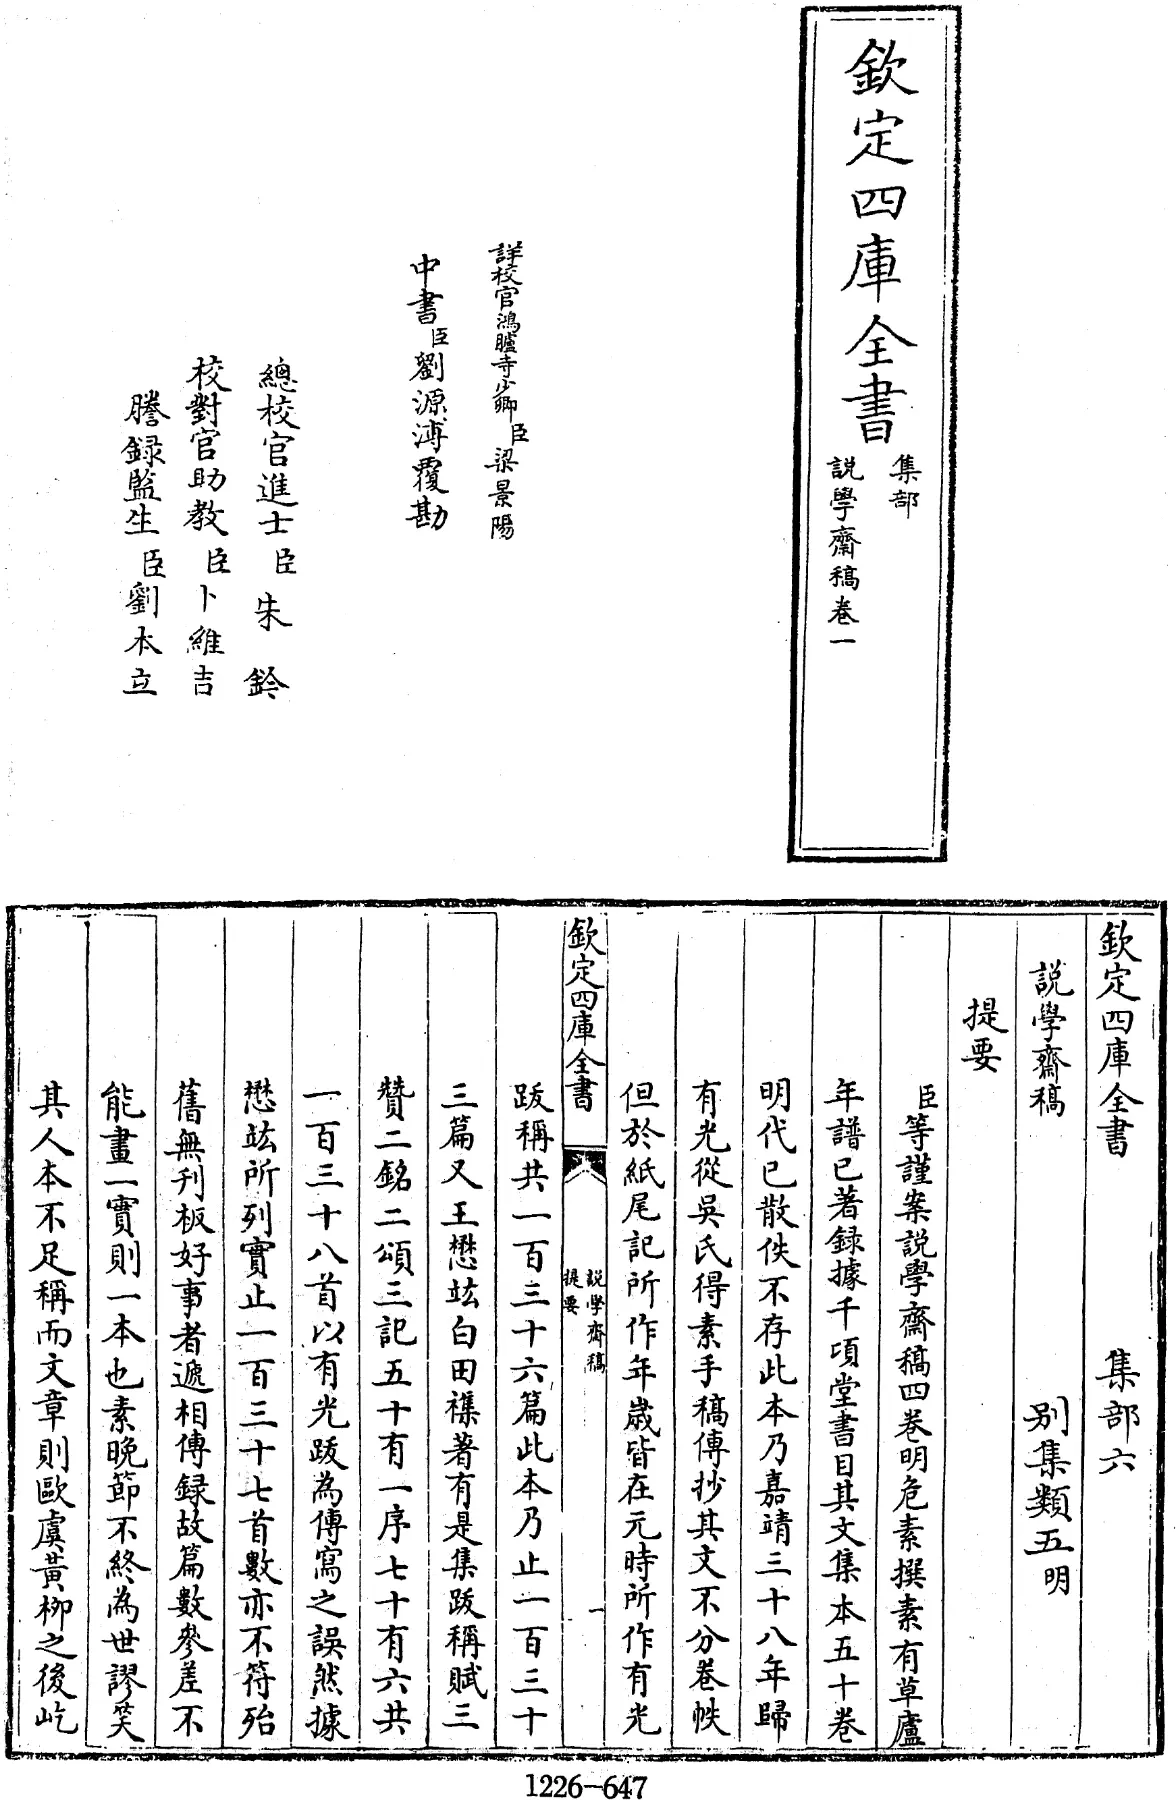 欽定四庫全書
集部
説學齋稿卷一
詳校官鴻臚寺少卿臣梁景陽
中書臣劉源溥覆勘
總校官進士臣朱鈐
校對官助教臣卜維吉
謄録監生臣劉本立
欽定四庫全書 集部六
説學齋稿 别集類五明
提要
臣等謹案説學齋稿四卷明危素撰素有草廬
年譜已著録據千頃堂書目其文集本五十卷
明代已散佚不存此本乃嘉靖三十八年歸
有光從吳氏得素手稿傳抄其文不分卷帙
但於紙尾記所作年歲皆在元時所作有光
欽定四庫全書
説學齋稿
提要
一
跋稱共一百三十六篇此本乃止一百三十
三篇又王懋竑白田襍著有是集跋稱賦三
贊二銘二頌三記五十有一序七十有六共
一百三十八首以有光跋為傳寫之誤然據
懋竑所列實止一百三十七首數亦不符殆
舊無刋板好事者遞相傳録故篇數參差不
能畫一實則一本也素晚節不終為世謬笑
其人本不足稱而文章則歐虞黃柳之後屹
1226-647